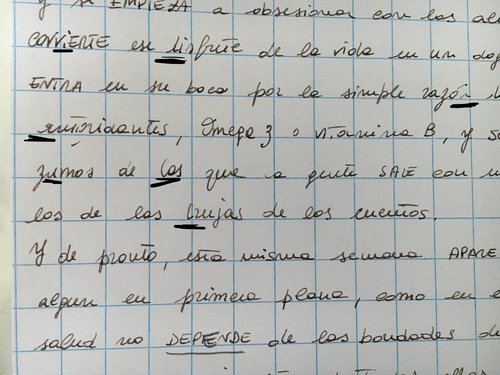 y se EMPIEZA a obsesionar con los al
CONVIERTE ese disfrute de la vida en un dog
ENTRA en su boca por la simple razón
antioxidantes, Omega 3 o vitamina B, y s
zumos de los que la gente SALE con u
los de las brujas de los cuentos.
Y de pronto, esta misma semana APARE
alguien en primera plana, como en e
salud no DEPENDE de las bondades d